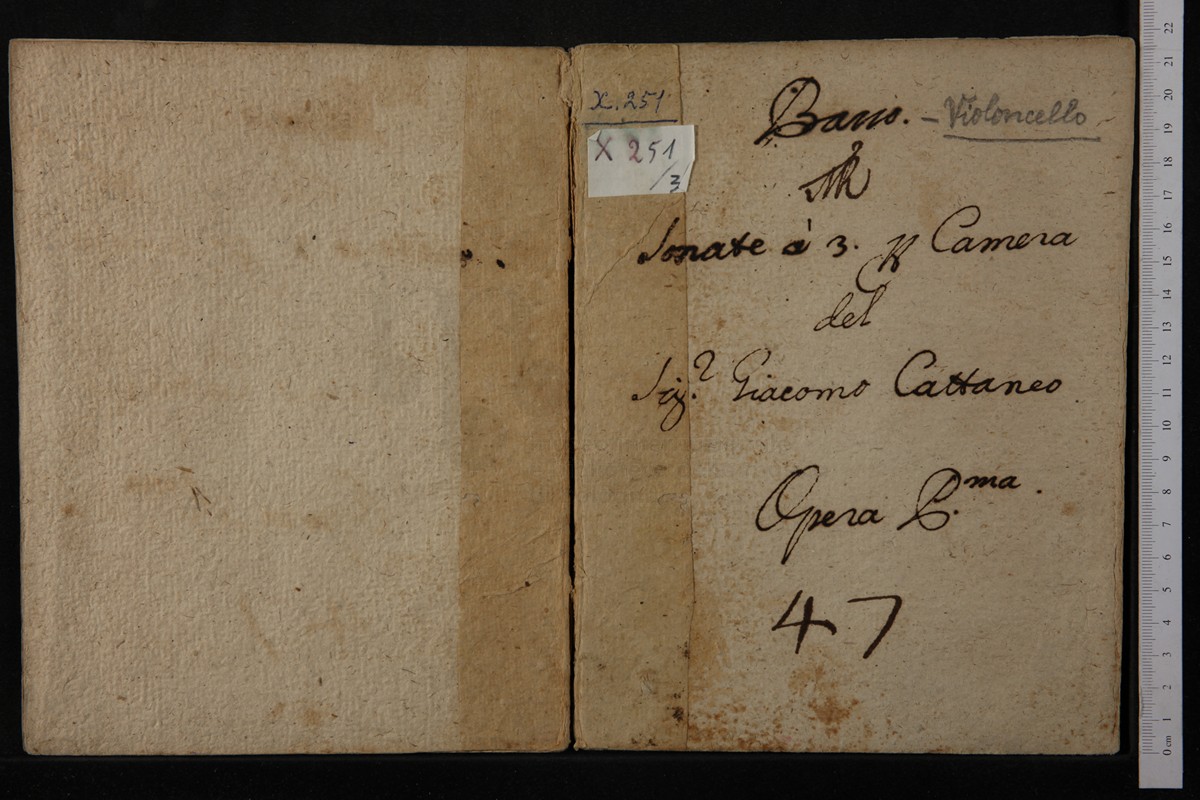 X. 251
X 251
/3
Basso. – Violoncello
Sonate à 3. Camera
del
Sig.r Giacomo Cattaneo
Opera P.ma.
47
22
21
20
19
18
17
16
15
14
13
12
11
10
9
8
7
6
5
4
3
2
1
0 cm